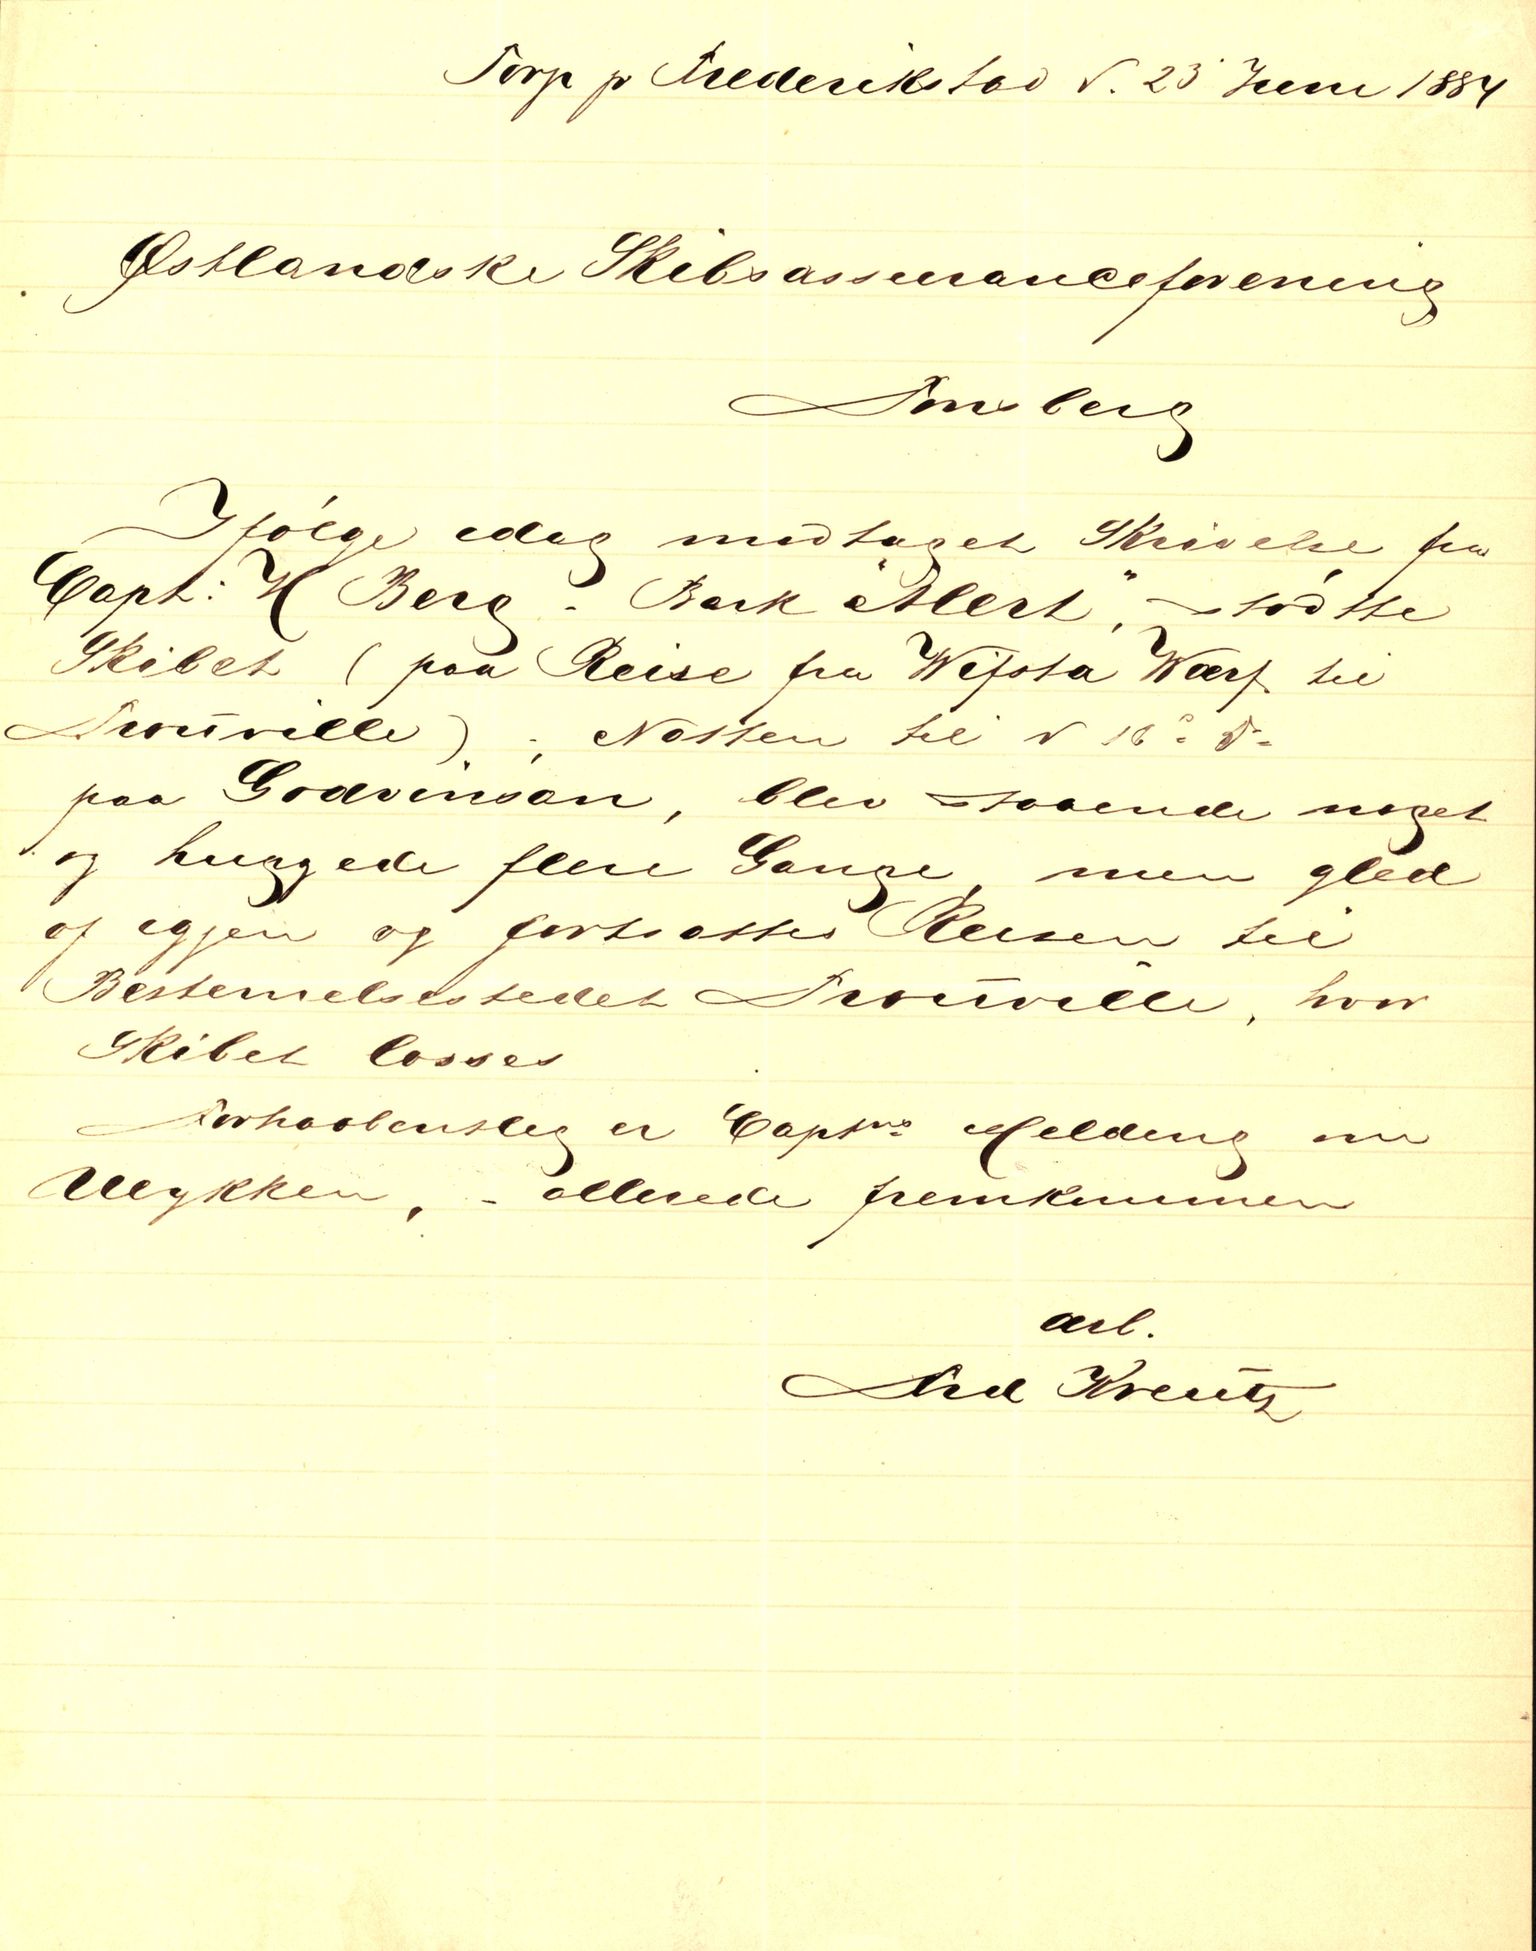 Torp pr Frederikstad d. 23 Juni 1884
Østlandske Skibsassuranceforening
Tønsberg
Ifølge idag modtaget Skrivelse fra
Capt: H Berg - Bark "Alert", stødte
Skibet (paa Reise fra Wifsta Warf til
Trouville) i Natten til d 16 d.
paa Grodvinsan, blev staaende noget
og huggede flere Gange, men gled
af igjen og fortsattes Reisen til
Bestemelsesstedet Trouville, hvor
Skibet losses
Forhaabentlig er Captns Melding om
Ulykken, - allerede fremkommen
ærb.
Fred Kreutz